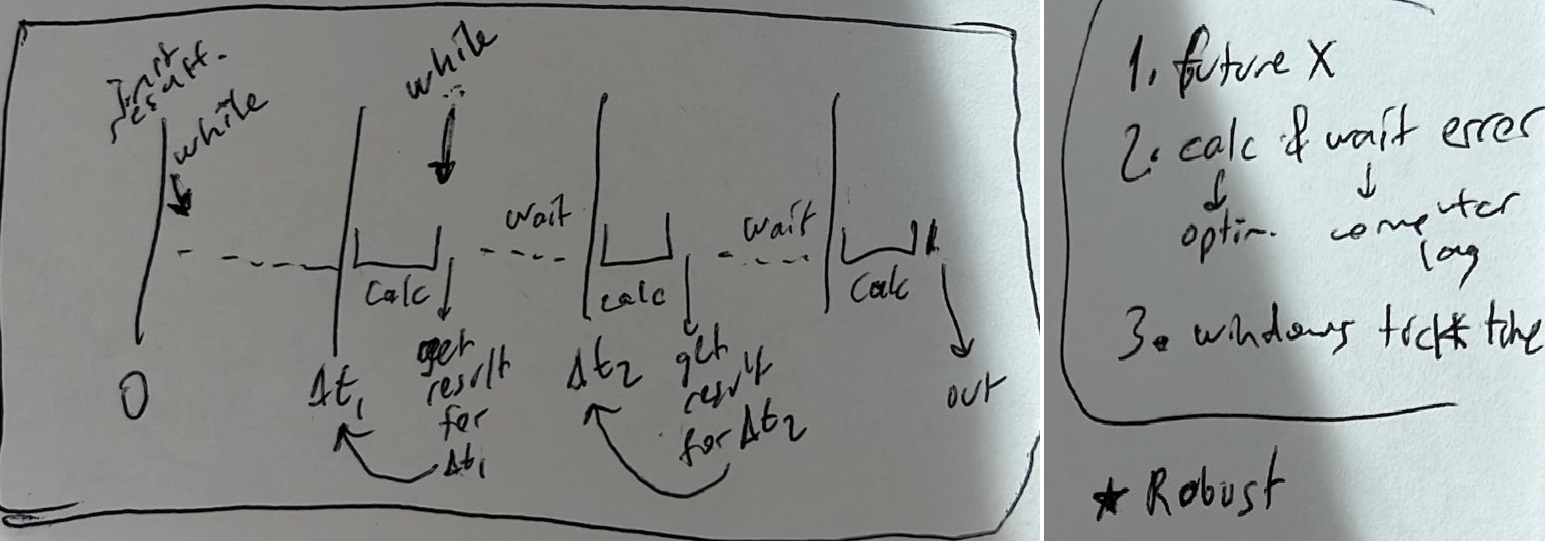 Init
result.
while
while
wait
wait
calc
calc
calc
0
Δt1
get
result
for
Δt1
Δt2
get
result
for Δt2
out
1. future X
2. calc & wait error
optim. computer
lag
3. windows tick* time
* Robust